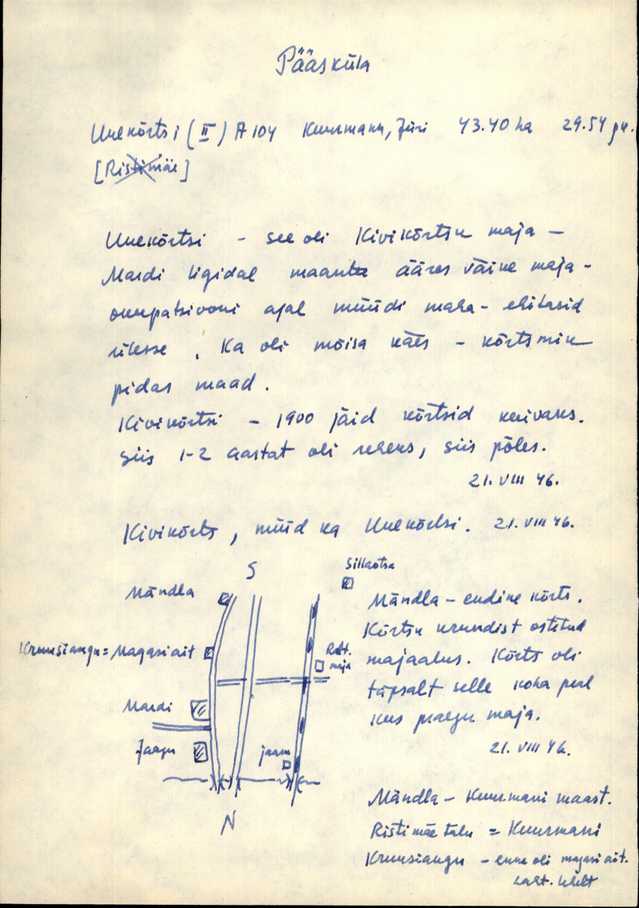 Pääsküla
Uuekõrtsi (II) A 104 Kuurmann, Jüri 43.40 ha 29.54
[Ristimäe]
Uuekõrtsi - see oli Kivikõrtsu maja -
Mardi ligidal maantee ääres väike maja -
okupatsiooni ajal müüdi maha - ehitasid
ülesse. Ka oli mõisa käes - kõrtsmik
pidas maad.
Kivikõrtsi - 1900 jäid kõrtsid kuivaks.
Siis 1-2 aastat oli, siis põles.
21. VIII 46.
Kivikõrts, nüüd ka Uuekõrtsi. 21. VIII 46.
S
Sillaotsa
Mändla
Kruusiaugu = Magasiait
Raut.
maja
Mardi
Jaagu
jaam
N
Mändla - endine kõrts.
Kõrtsu krundist ostetud
majaalus. Kõrts oli
täpsalt selle koha peal
kus praegu maja.
21. VIII 46.
Mändla - Kuurmani maast.
Ristimäe talu = Kuurmani
Kruusiaugu - enne oli magasiait.